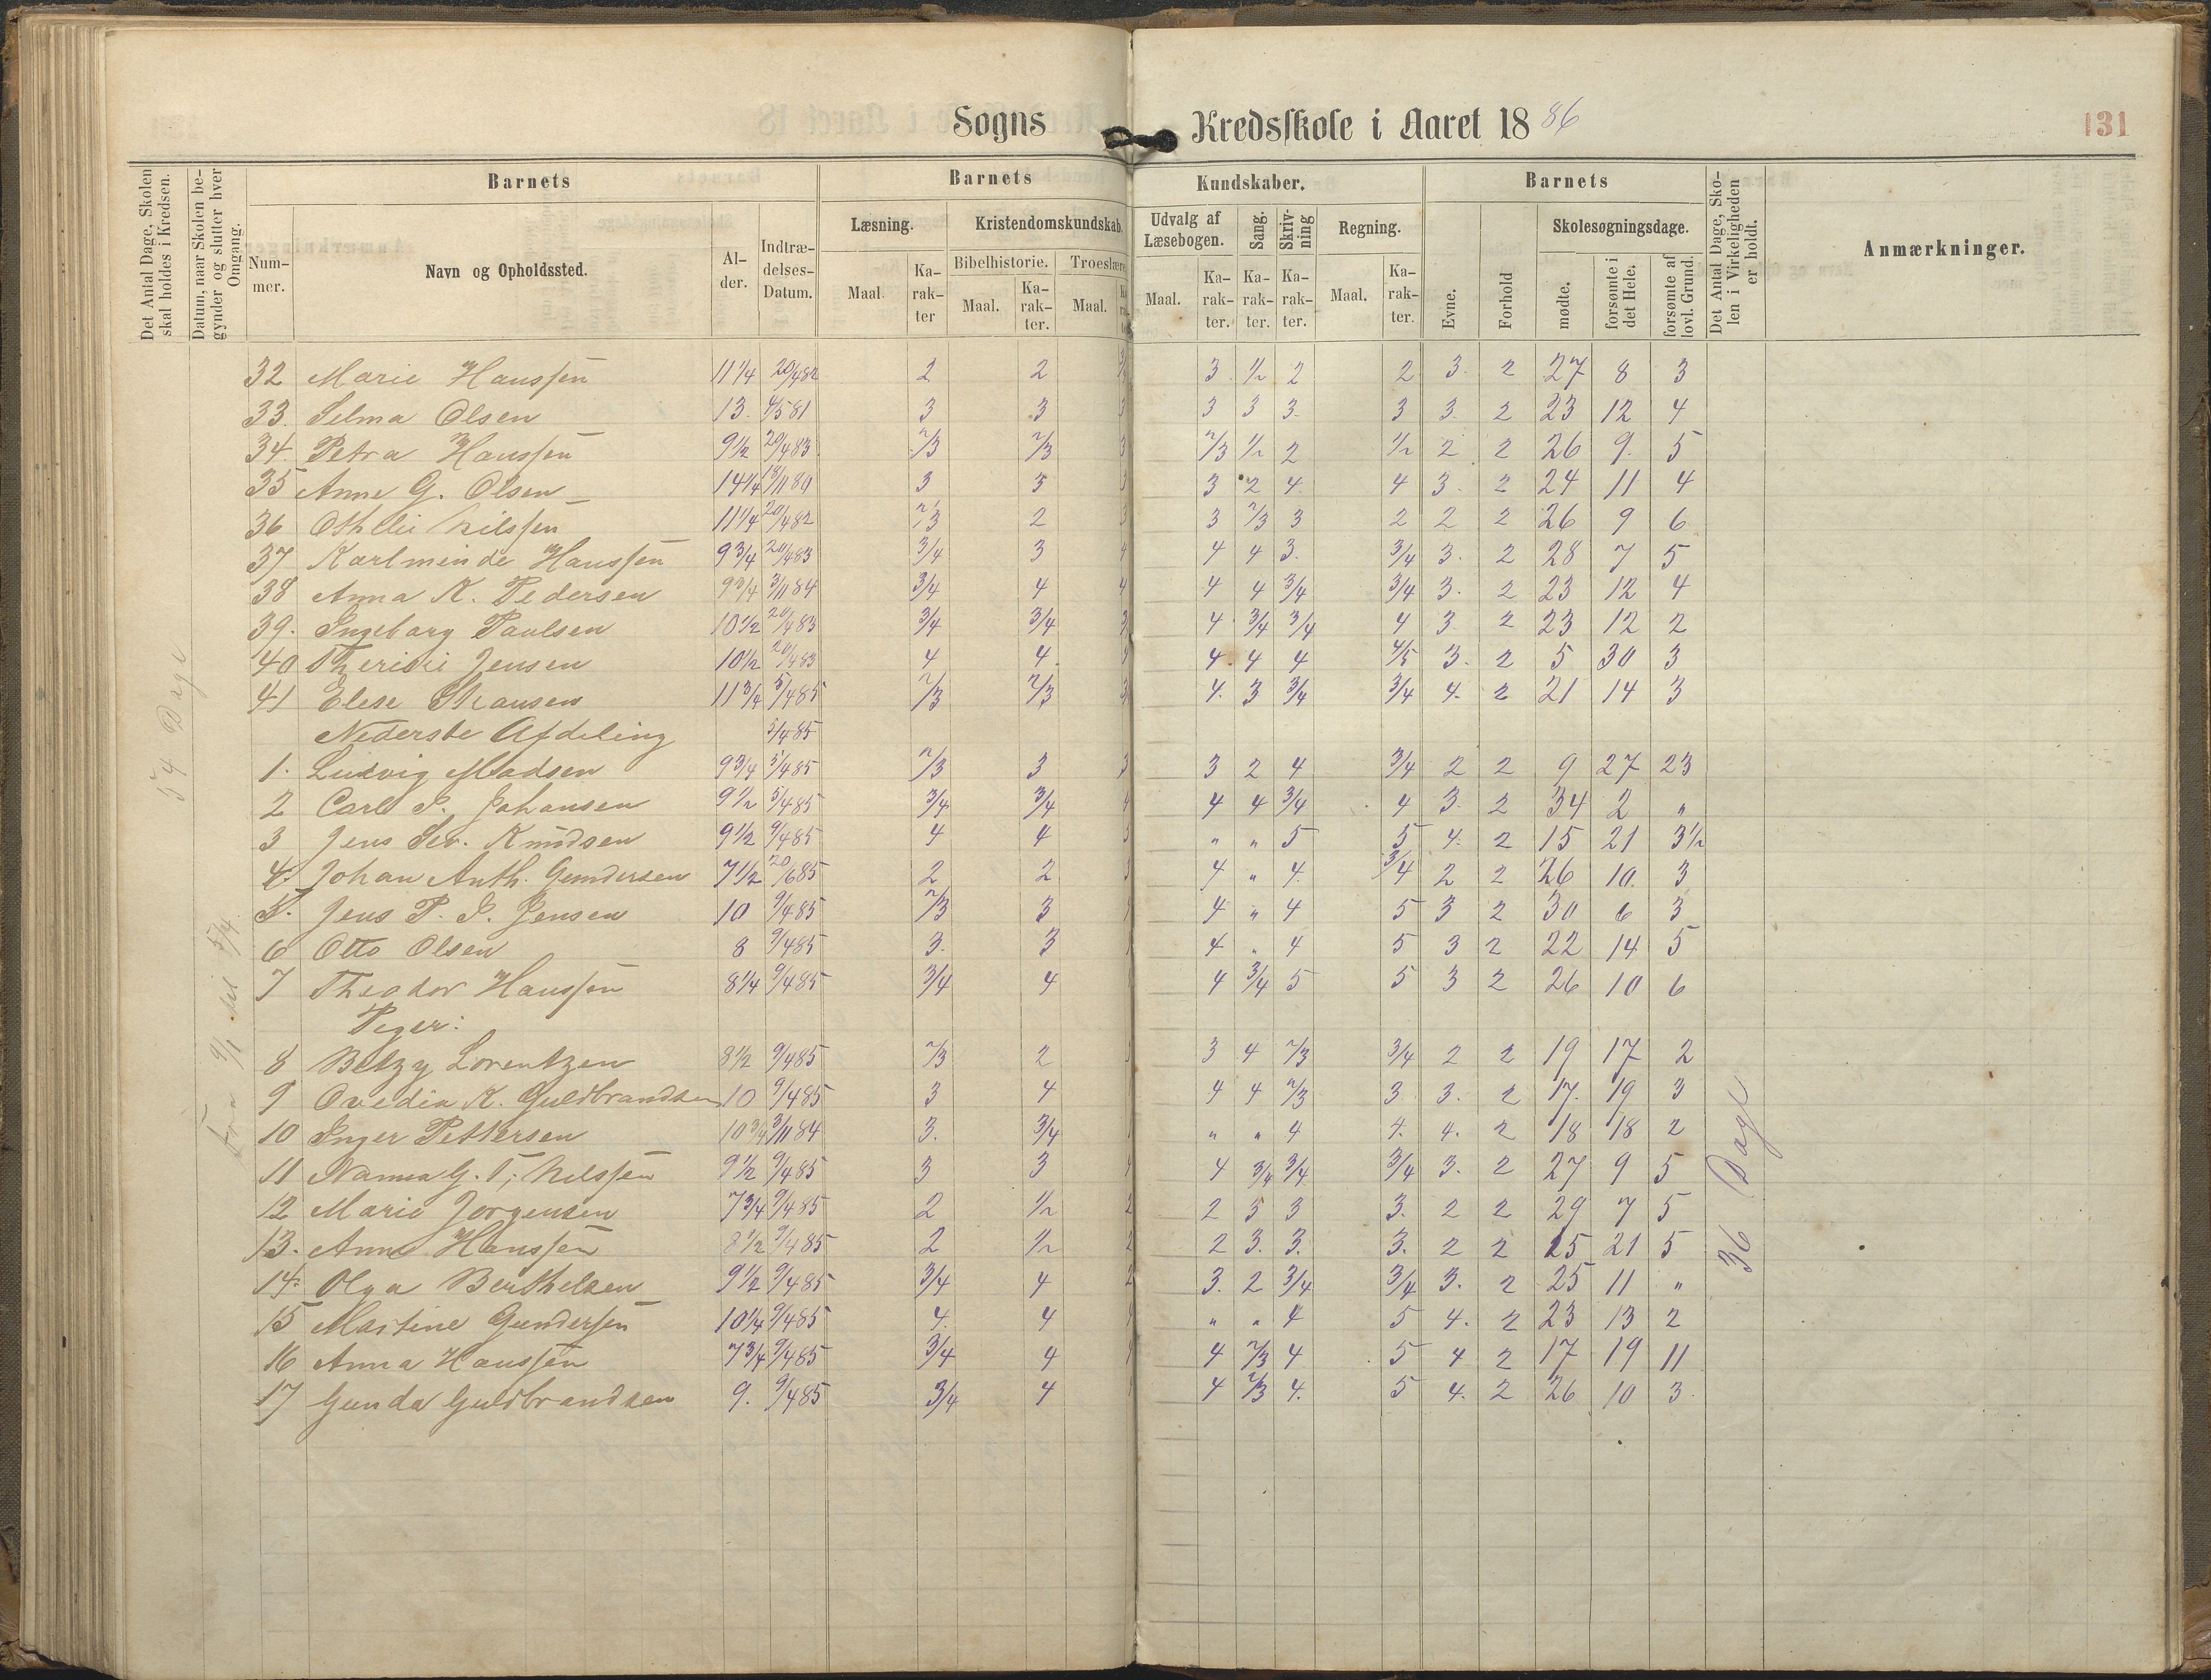 Sogns Kredsskole i Aaret 1886
131
Det Antal Dage, Skolen skal holdes i Kredsen.
Datum, naar Skolen begynder og slutter hver Omgang.
Barnets
Nummer.
Navn og Opholdssted.
Alder.
Indtrædelses-Datum.
Barnets Kundskaber.
Læsning.
Maal. Karakter
Kristendomskundskab.
Bibelhistorie. Maal. Karakter.
Troeslære. Maal.
Udvalg af Læsebogen. Maal. Karakter.
Sang. Karakter.
Skrivning Karakter.
Regning. Maal. Karakter.
Barnets
Evne.
Forhold
Skolesøgningsdage.
mødte.
forsømte i det Hele.
forsømte af lovl. Grund.
Det Antal Dage, Skolen i Virkeligheden er holdt.
Anmærkninger.
54 Dage
Fra 9/1 til 5/4
36 Dage
32 Marie Hanssen 11 1/4 20/4 82 2 2 3 1/2 2 2 3. 2 27 8 3
33. Selma Olsen 13. 4/5 81 3 3 3 3 3 3. 3 3. 2 23 12 4
34. Petra Hanssen 9 1/2 20/4 83 2/3 2/3 3 2/3 1/2 2 1/2 2 2 26 9. 5
35 Anne G. Olsen 14 1/4 18/11 80 3 3 3 3 2 4. 4 3. 2 24 11 4
36 Othilie Nilssen 11 1/4 20/4 82 2/3 2 3 3 2/3 3 2 2 2 26 9 6
37 Karlminde Hanssen 9 3/4 20/4 83 3/4 3 4 4 4 3. 3/4 3. 2 28 7 5
38 Anna K. Pedersen 9 3/4 3/11 84 3/4 4 4 4 4 3/4 3/4 3. 2 23 12 4
39. Ingeborg Paulsen 10 1/2 20/4 83 3/4 3/4 4 3/4 3/4 4 3 2 23 12 2
40 Jensen 10 1/2 20/4 83 4 4. 4. 4 4 4/5 3. 2 5 30 3
41 Elese 11 3/4 5/4 85 2/3 2/3 3 4. 3 3/4 3/4 4. 2 21 14 3
Nederste Afdeling 5/4 85
1. Ludvig Madsen 9 3/4 5/4 85 2/3 3 3 3 2 4 3/4 2 2 9 27 23
2 Carl P. Johansen 9 1/2 5/4 85 3/4 3/4 4 4 4 3/4 4 3. 2 34 2 "
3 Jens Sev. Knudsen 9 1/2 9/4 85 4 4 " " 5 5 4. 2 15 21 3 1/2
4. Johan Anth. Gundersen 7 1/2 20/6 85 2 2 3 4 " 4. 3/4 2 2 26 10. 3
5. Jens P. S. Jensen 10 9/4 85 2/3 3 4 " 4 5 3 2 30 6 3
6 Otto Olsen 8 9/4 85 3. 3 4 " 4 5 3 2 22 14 5
7 Theodor Hanssen 8 1/4 9/4 85 3/4 4 4 3/4 5 5 3 2 26 10 6
Piger:
8 Betzy Lorentzen 8 1/2 9/4 85 2/3 2 3 4 2/3 3/4 2 2 19 17 2
9 Ovedia K. Guldbrandsen 10 9/4 85 3 4 4 4 2/3 3 3. 2 17. 19 3
10 Inger Pettersen 10 3/4 3/11 84 3. 3/4 " " 4 4. 4. 2 18 18 2
11 Nanna G. T. Nilssen 9 1/2 9/4 85 3 3 4 4 3/4 3/4 3/4 3. 2 27 9 5
12 Marie Jorgensen 7 3/4 9/4 85 2 1/2 2 2 3 3 3. 2 2 29 7 5
13. Anne Hanssen 8 1/2 9/4 85 2 1/2 2 2 3. 3. 3. 2 2 15 21 5
14. Olga Berthelsen 9 1/2 9/4 85 3/4 4 2 3. 2 3/4 3/4 3. 2 25 11 "
15 Martine Gundersen 10 1/4 9/4 85 4. 4 4 " " 4 5 4. 2 23 13 2
16 Anna Hanssen 7 3/4 9/4 85 3/4 4 4 2/3 4 5 4 2 17 19 11
17 Gunda Guldbrandsen 9. 9/4 85 3/4 4 4 2/3 4. 5 4. 2 26 10 3.